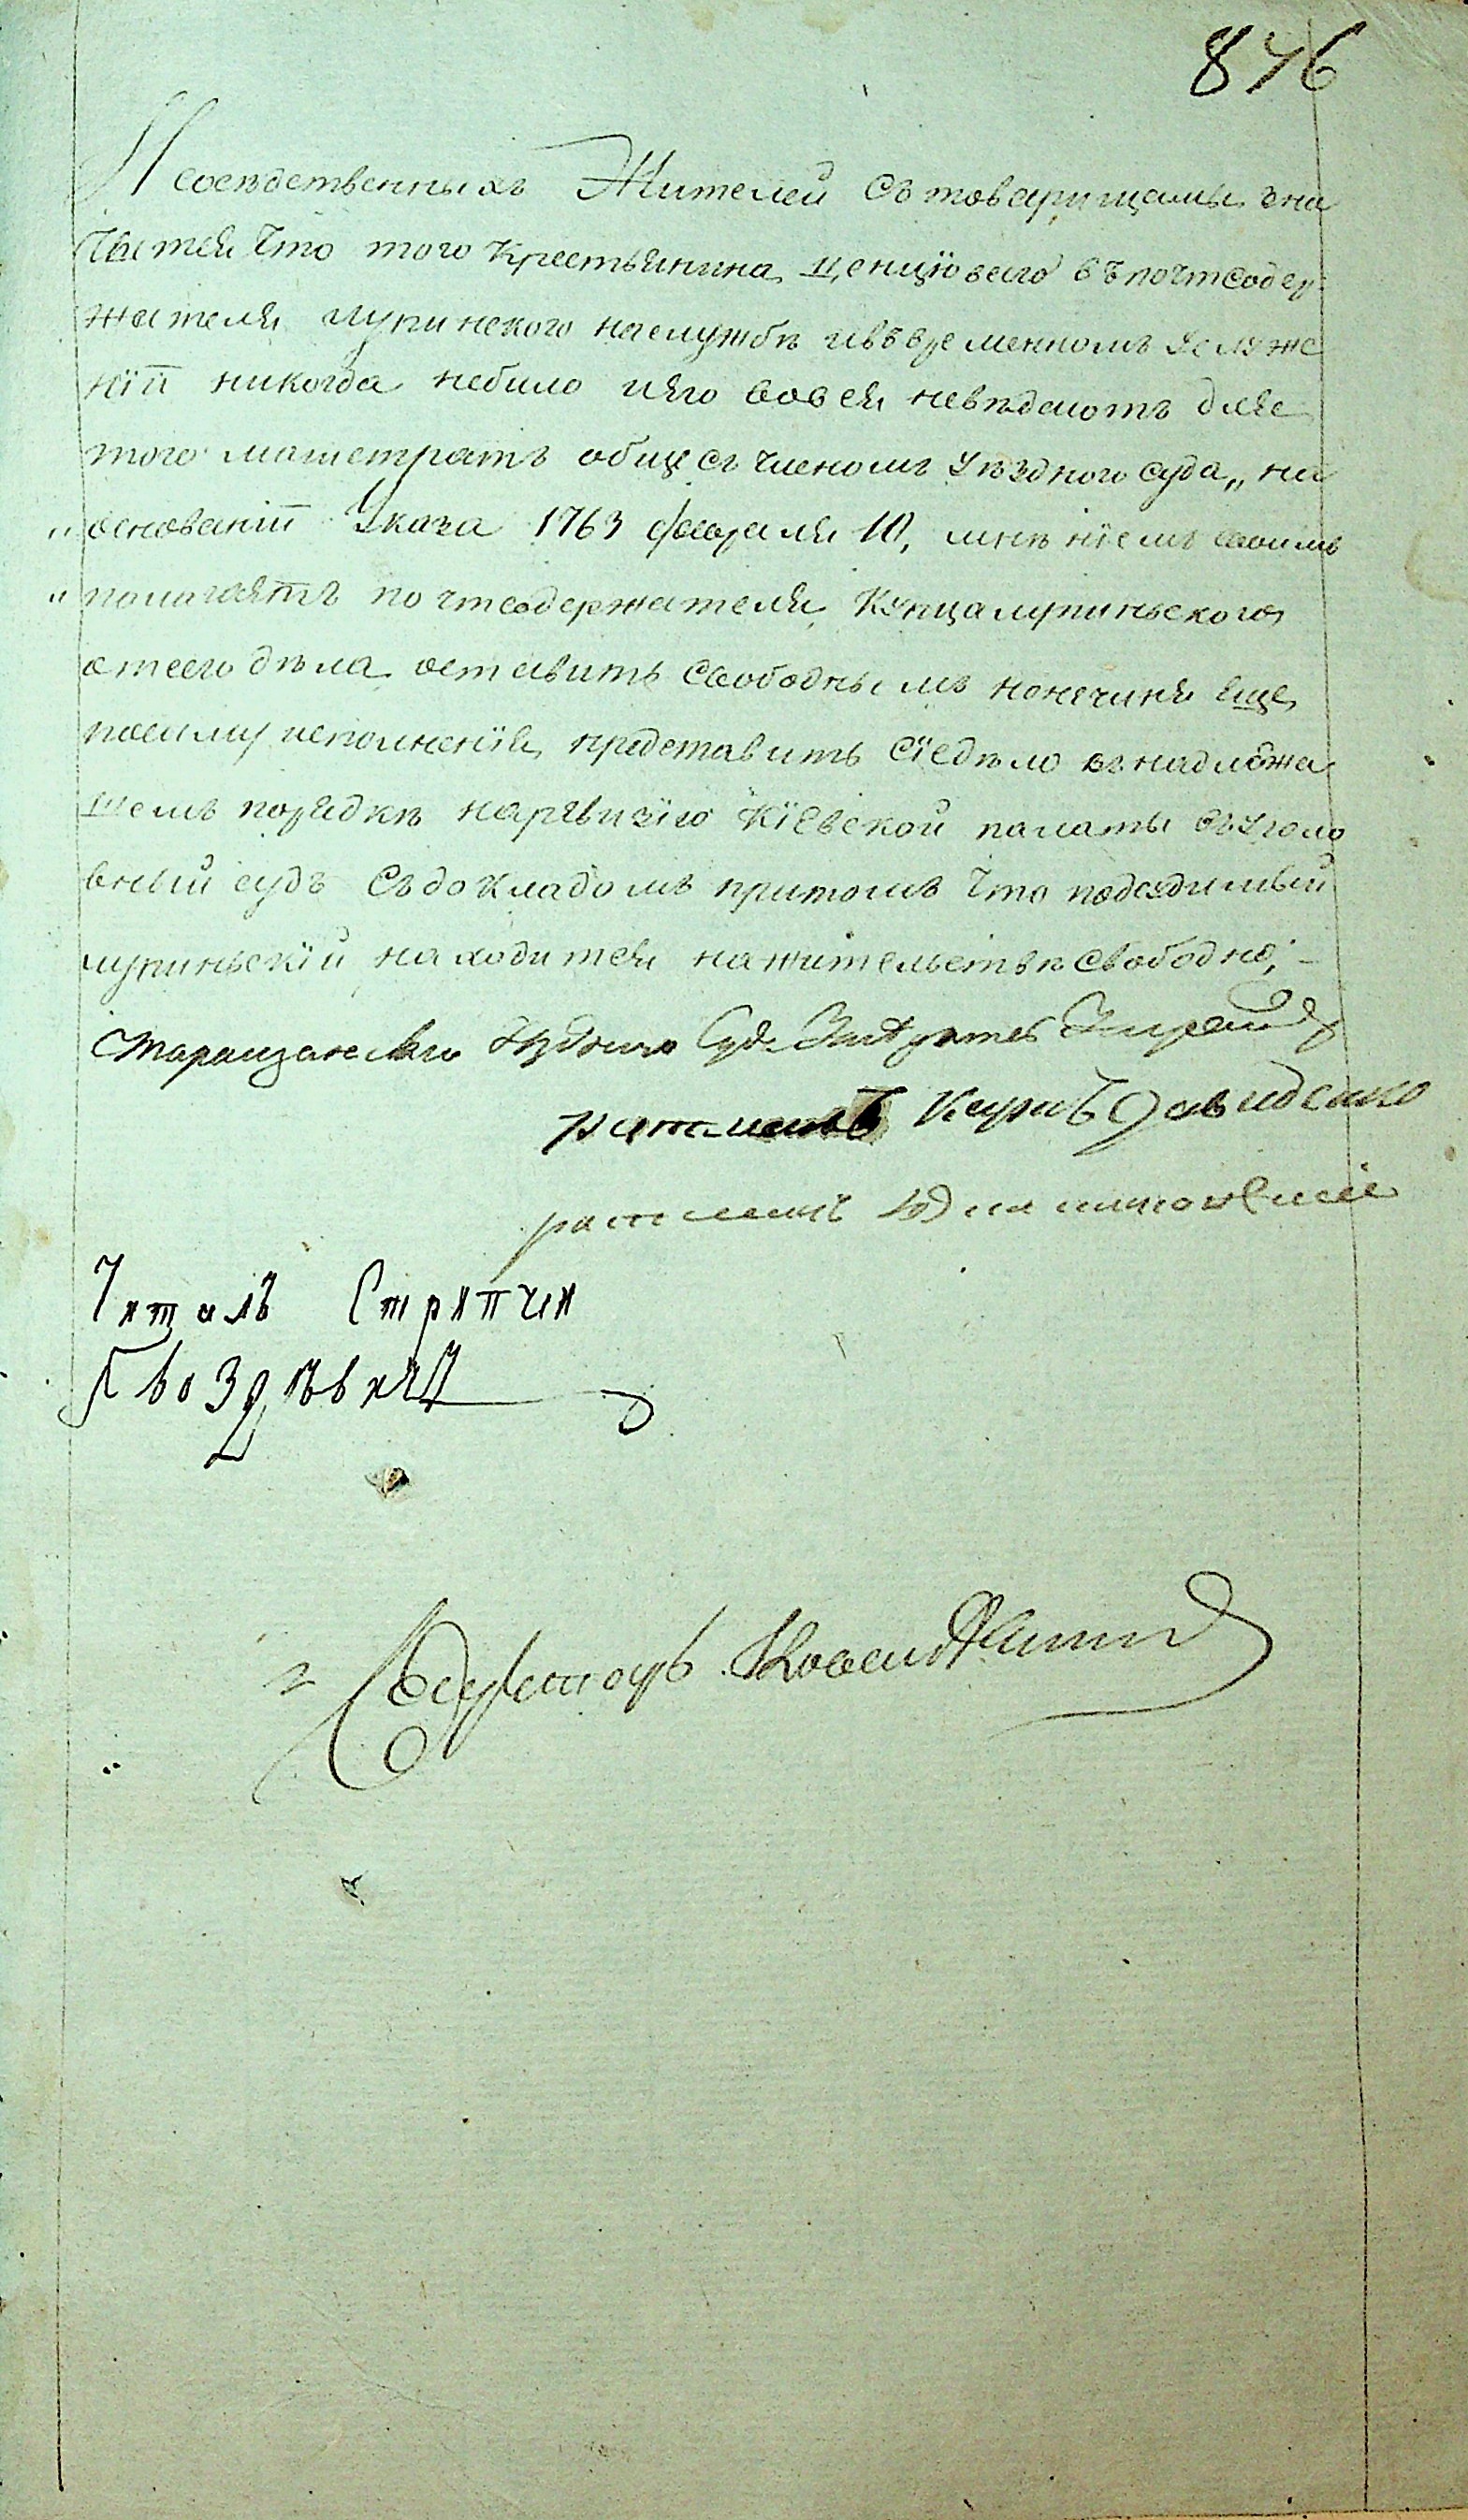 846
И соседственныхъ Жителей Съ товарищамы зна
чытся Что того Крестьянина въ почтсодер
жателя лупинского наслужбѣ ивъвременномъ Услуже
ніи никогда небило иего вовся невѣдаютъ для
того магистратъ обще съ членомъ уѣзднаго суда„ на
„основаніи Указа 1763 февраля 10, мнѣніемъ своимъ
„полагаятъ почтсодержателя, Купца лупиньского
отсего дѣла оставить Свободнымъ нонечиня Еще
посиму исполненія, представить Сіедѣло въ надлежа
щемъ порядкѣ наревизію Кіевской палаты въ уголо
вный судъ Съ докладомъ притомъ Что подсудимый
лупиньскій находится нажительствѣ Свободно, –
Таращанского Суда
ратманъ Давиденко
ратманъ
Читалъ Стряпчи
Гвоздѣвичъ